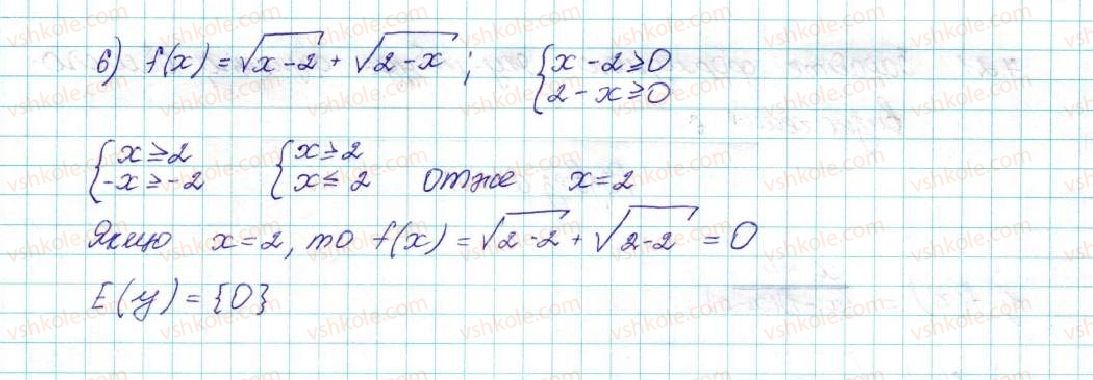 6) f(x) = √(x-2) + √(2-x) ; {x-2≥0
2-x≥0
{x≥2 {x≥2
-x≥-2 x≤2 отже x=2
Якщо x=2, то f(x) = √(2-2) + √(2-2) = 0
E(y) = {0}